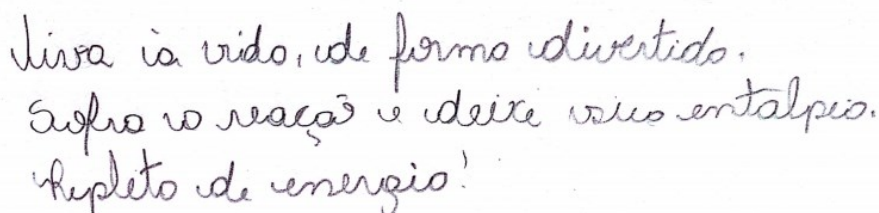 Viva a vida, de forma divertida.
Sofra a reação e deixe sua entalpia.
Repleta de energia!